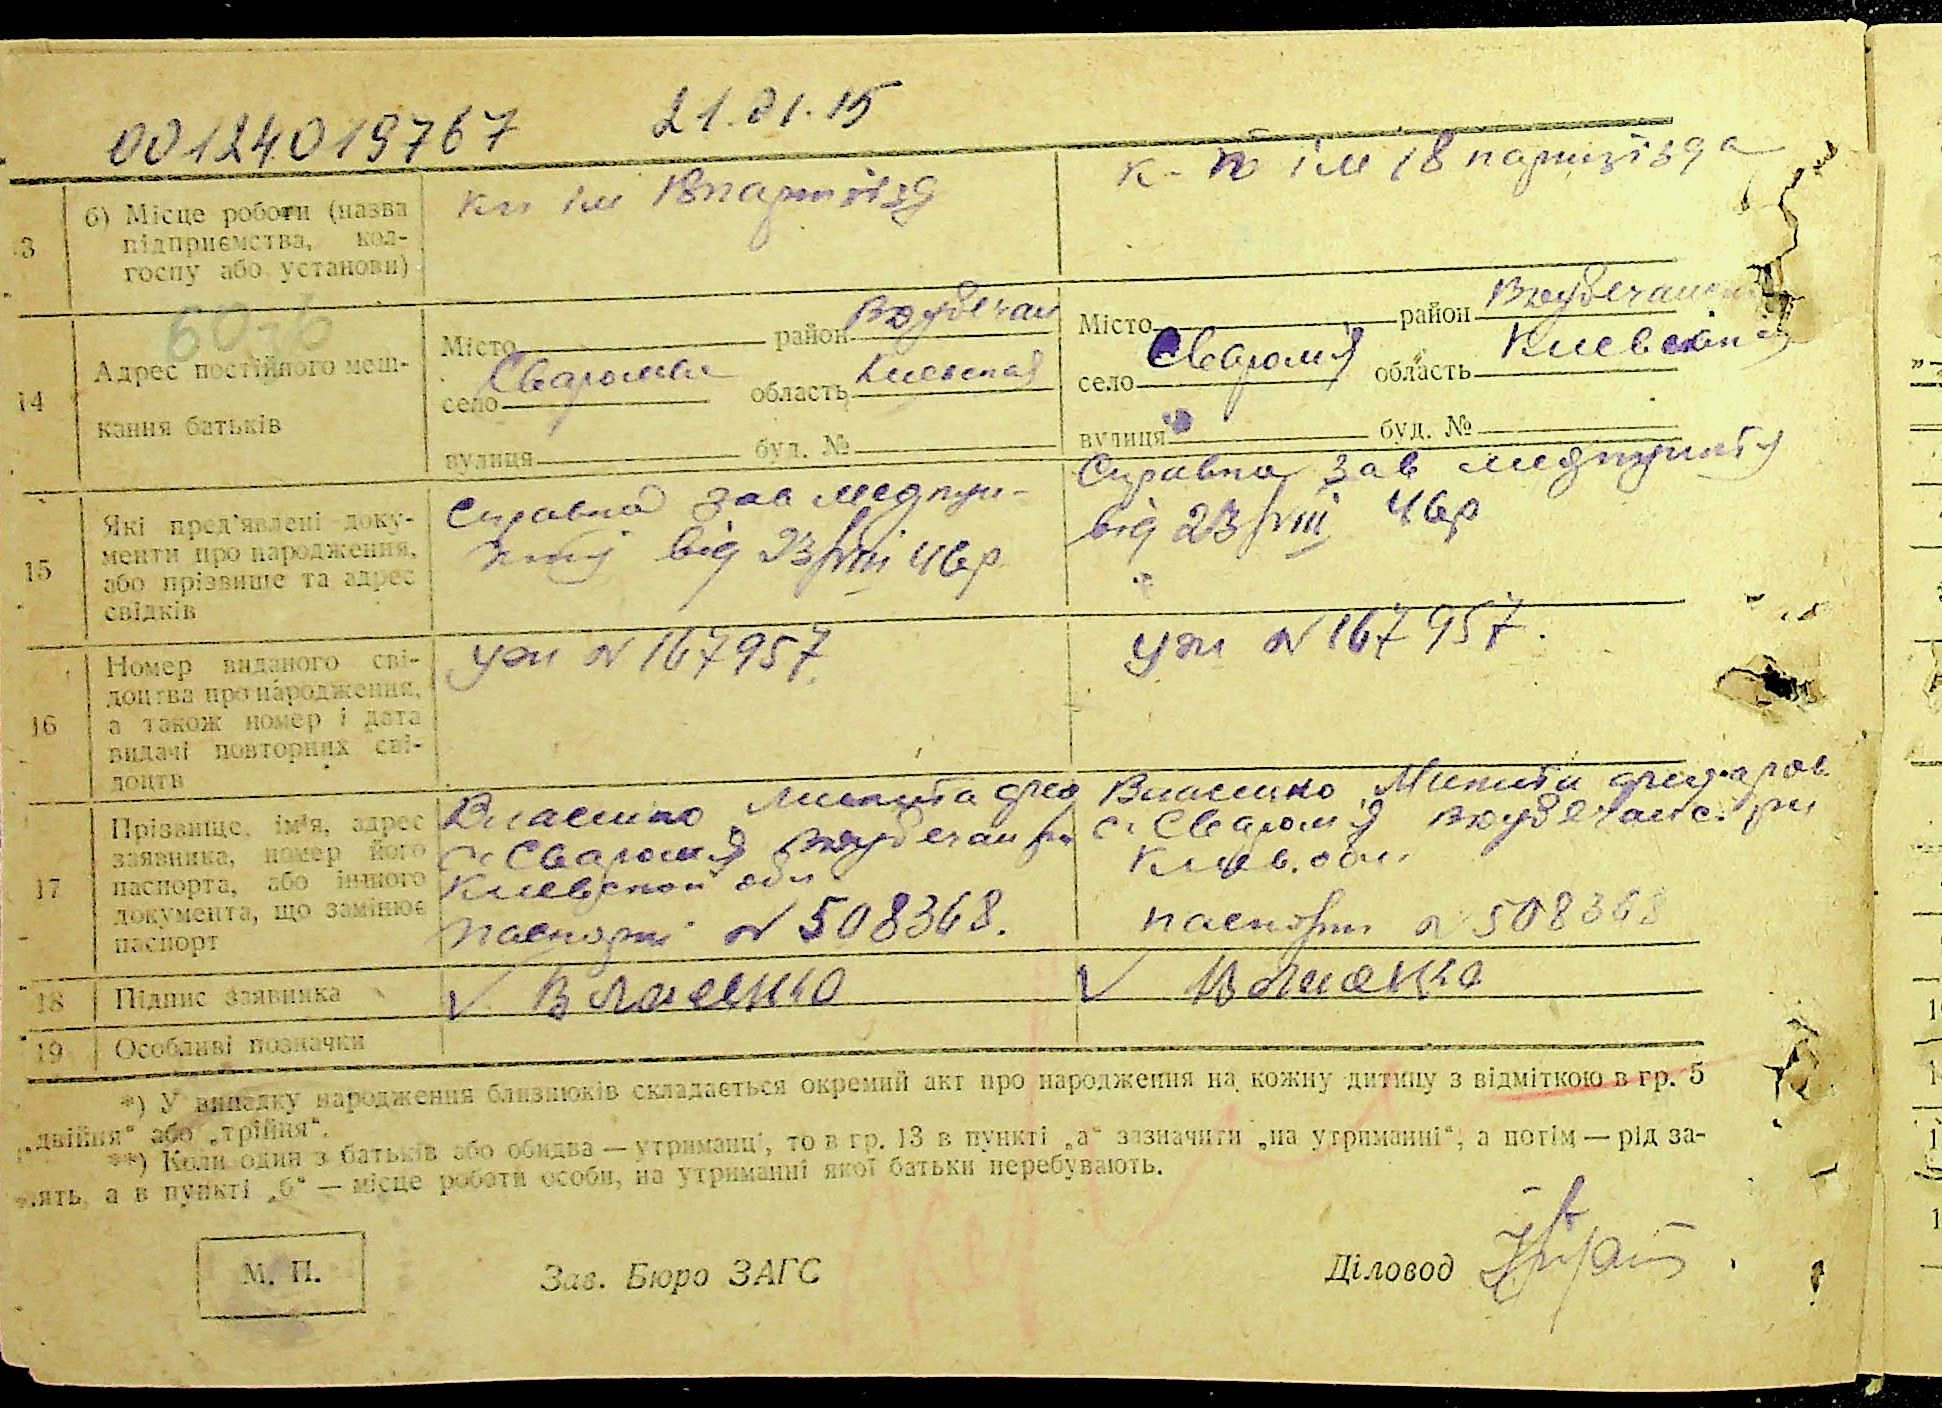 00124019767 21.01.15
13
б) Місце роботи (назва
підприємства, кол-
госпу або установи)
кп ім 18 партзізд
к-п ім 18 партзізда
14
Адрес постійного меш-
кання батьків
Місто район
село Сваромья область Киевская
вулиця буд. №
Місто район
село Сваромя область
вулиця буд. №
15
Які пред'явлені доку-
менти про народження,
або прізвище та адрес
свідків
Справка зав медпун-
кту від 23/VIII 46р
Справка зав медпункту
від 23/VIII 46р
16
Номер виданого сві-
доцтва про народження,
а також номер і дата
видачі повторних сві-
доцтв
№ 167957
№ 167957.
17
Прізвище, ім'я, адрес
заявника, номер його
паспорта, або іншого
документа, що замінює
паспорт
Власенко Микита
с. Сваромя
Киевской обл
паспорт № 508368.
Власенко Микита
с. Сваромя
Киев. обл.
паспорт № 508368
18
Підпис заявника
Власенко
Власенко
19
Особливі позначки
*) У випадку народження близнюків складається окремий акт про народження на кожну дитину з відміткою в гр. 5
„двійня“ або „трійня“.
**) Коли один з батьків або обидва — утриманці, то в гр. 13 в пункті „а“ зазначити „на утриманні“, а потім — рід за-
нять, а в пункті „б“ — місце роботи особи, на утриманні якої батьки перебувають.
М. П.
Зав. Бюро ЗАГС
Діловод